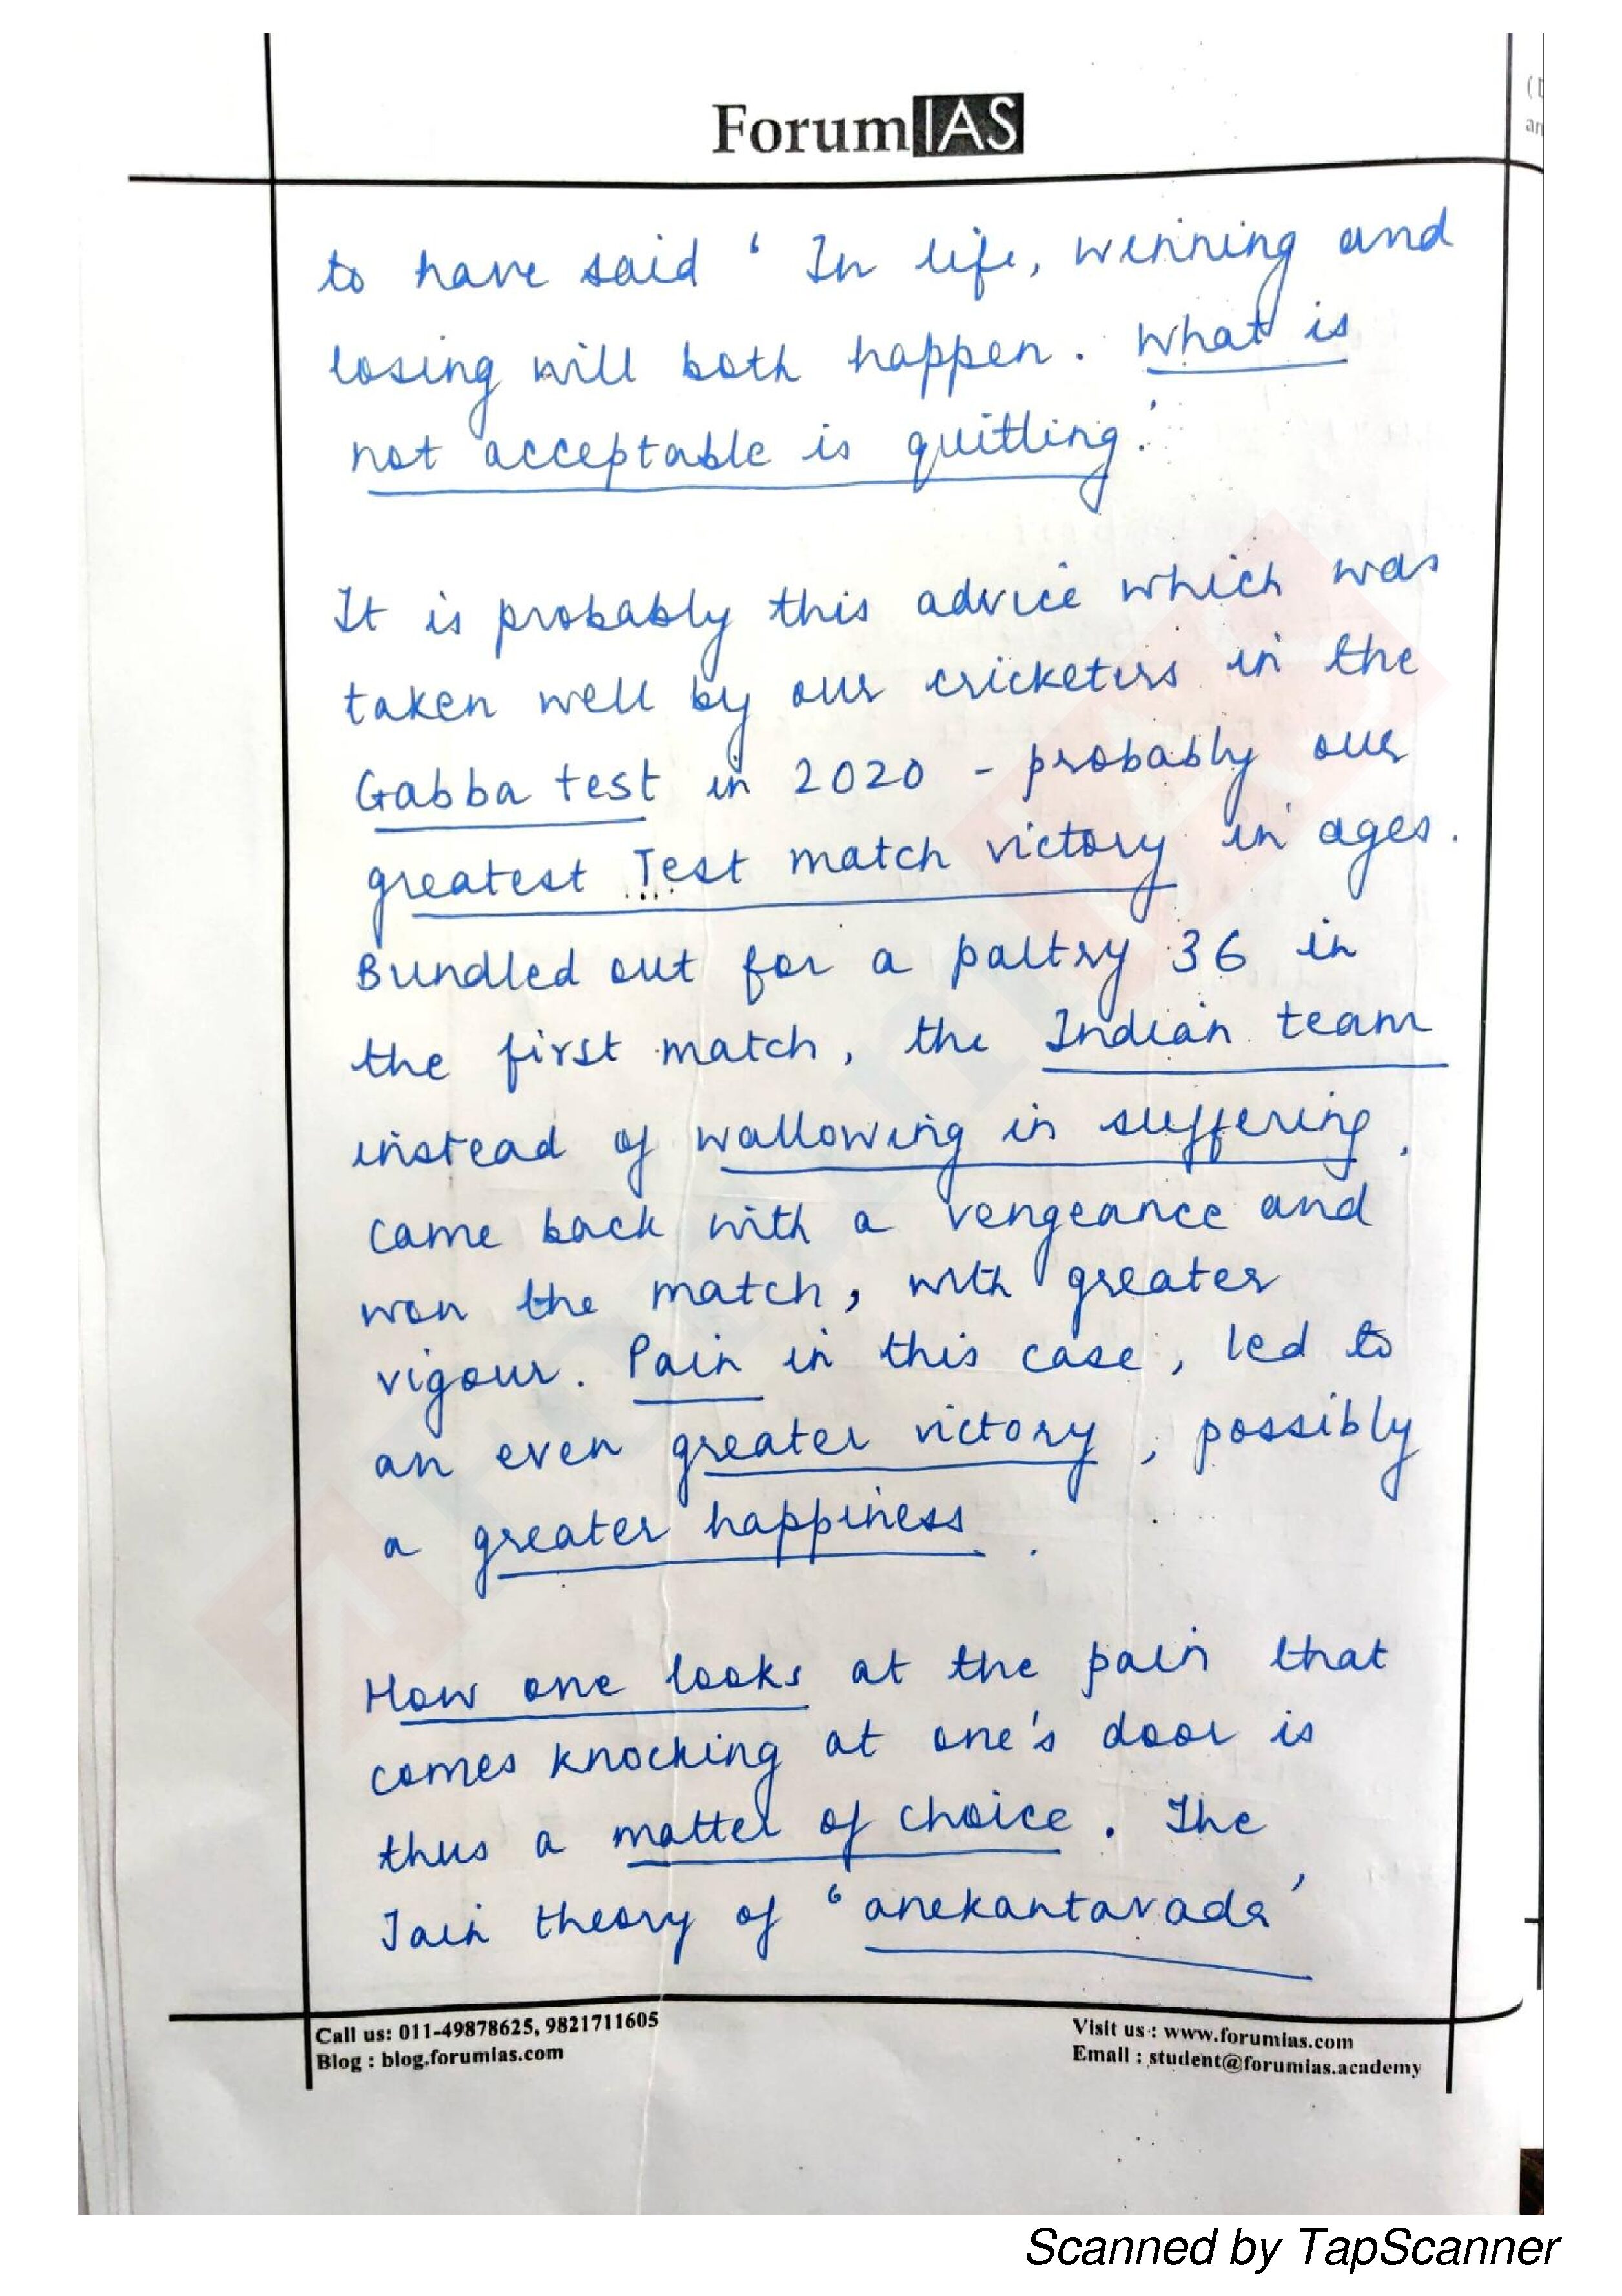 ForumIAS
to have said ' In life, winning and
losing will both happen. What is
not acceptable is quitting.'
It is probably this advice which was
taken well by our cricketers in the
Gabba test in 2020 - probably our
greatest Test match victory in ages.
Bundled out for a paltry 36 in
the first match, the Indian team
instead of wallowing in suffering,
came back with a vengeance and
won the match, with greater
vigour. Pain in this case, led to
an even greater victory, possibly
a greater happiness.
How one looks at the pain that
comes knocking at one's door is
thus a matter of choice. The
Jain theory of 'anekantavada'
Call us: 011-49878625, 9821711605
Blog : blog.forumias.com
Visit us : www.forumias.com
Email : student@forumias.academy
Scanned by TapScanner